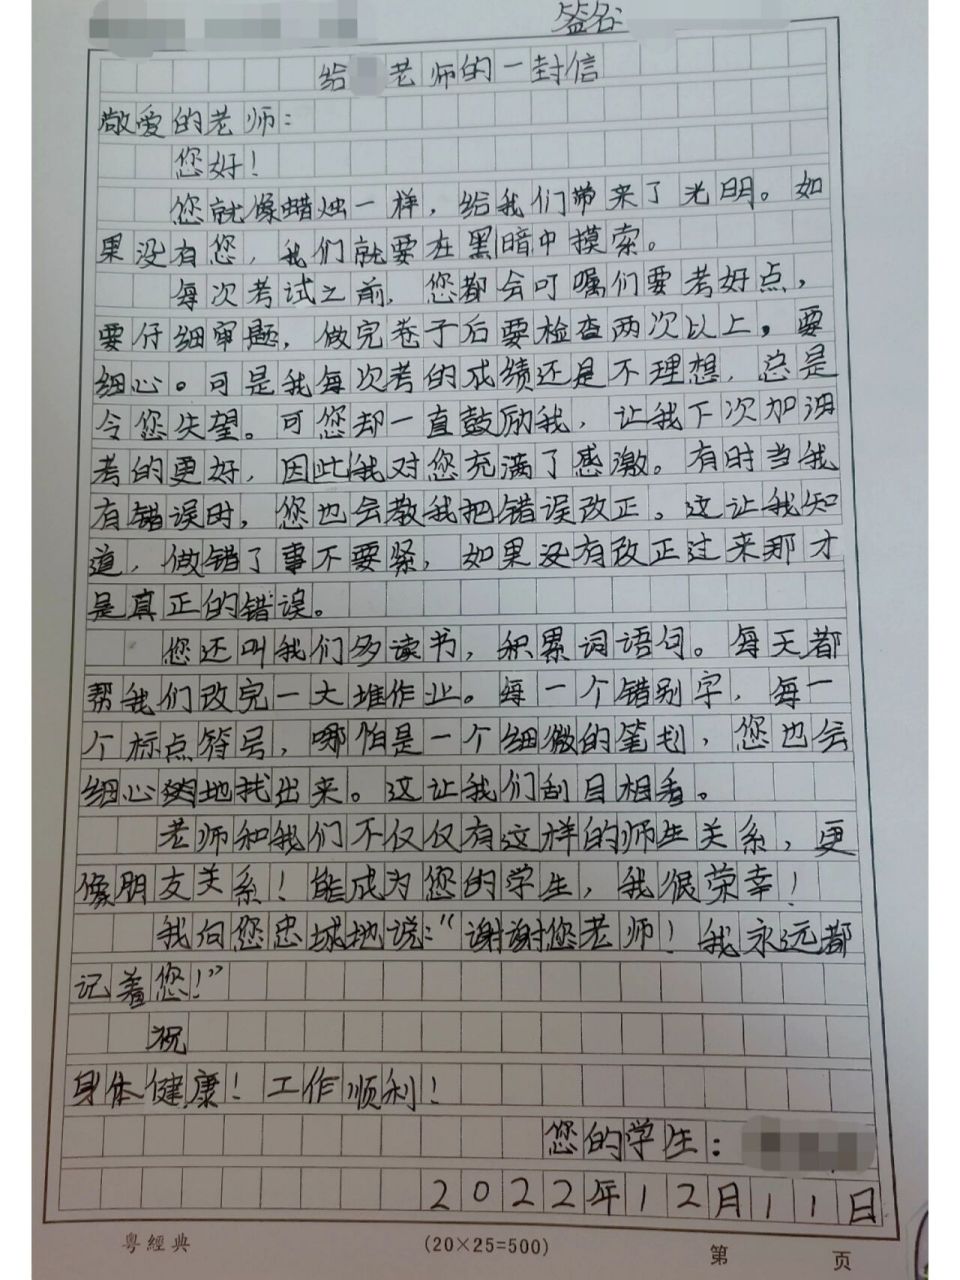 签名
给 老师的一封信
敬爱的老师：
您好！
您就像蜡烛一样，给我们带来了光明。如
果没有您，我们就要在黑暗中摸索。
每次考试之前，您都会叮嘱们要考好点，
要仔细审题，做完卷子后要检查两次以上，要
细心。可是我每次考的成绩还是不理想，总是
令您失望。可您却一直鼓励我，让我下次加油
考的更好，因此我对您充满了感激。有时当我
有错误时，您也会教我把错误改正。这让我知
道，做错了事不要紧，如果没有改正过来那才
是真正的错误。
您还叫我们多读书，积累词语句。每天都
帮我们改完一大堆作业。每一个错别字，每一
个标点符号，哪怕是一个细微的笔划，您也会
细心地找出来。这让我们刮目相看。
老师和我们不仅仅有这样的师生关系，更
像朋友关系！能成为您的学生，我很荣幸！
我向您忠城地说：“谢谢您老师！我永远都
记着您！”
祝
身体健康！工作顺利！
您的学生：
2022年12月11日
粤經典 (20×25=500) 第 页